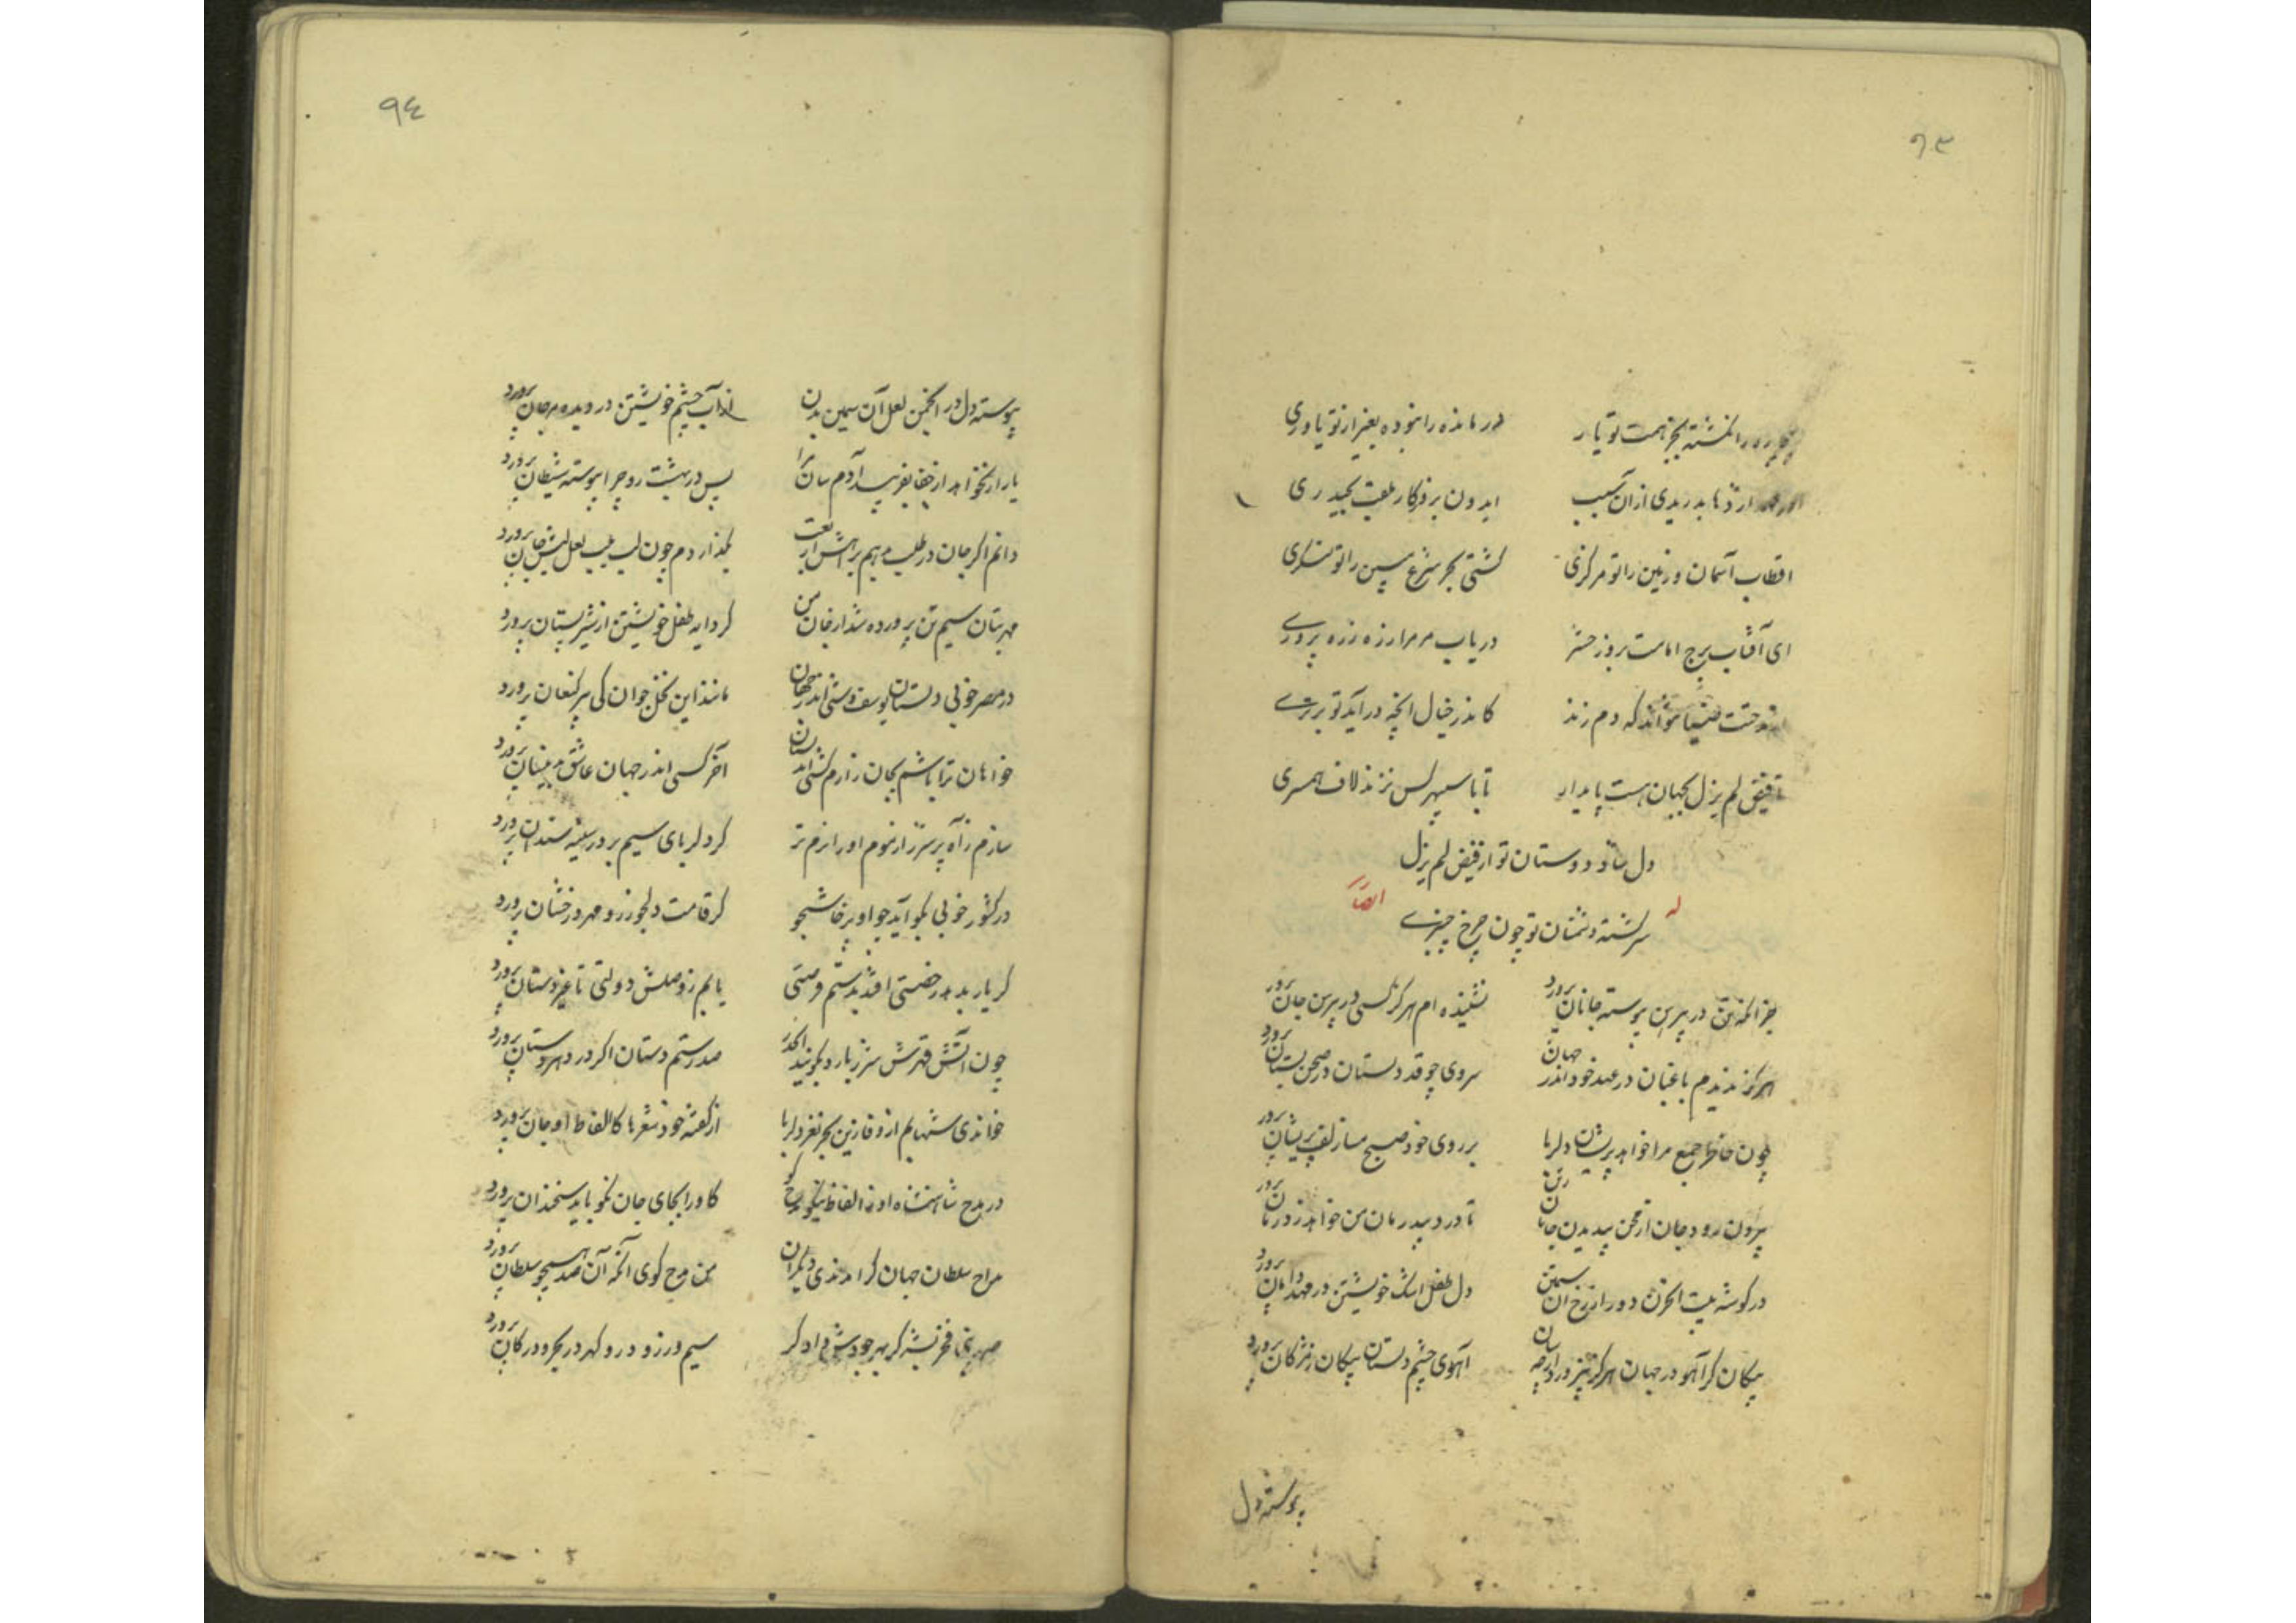 ۹۳
بجز همت تو یار
درمانده را نبوده بغیر از تو یاوری
بدریدی از آن سبب
ایدون بر
حیدری
اقطاب آسمان و زمین را تو مرکزی
کشتی بحر شرع مبین را تو لنگری
ای آفتاب برج امامت بروز حشر
دریاب مر مرا ز ره ذره پروری
که دم زند
کاندر خیال آنچه در آید تو برتری
تا فیض لم یزل بجهان هست پایدار
تا با سپهر کس نزند لاف همسری
دل شاد دوستان تو از فیض لم یزل
سرگشته دشمنان تو چون چرخ چنبری
له ایضا
جز آنکه تن در پیرهن پیوسته جانان پرورد
نشنیده ام هرگز کسی در پیرهن جان پرورد
هرگز ندیدم باغبان در عهد خود اندر جهان
سروی چو قد دلستان در صحن بستان پرورد
چون خاطر جمع مرا خواهد پریشان دلربا
بر روی خود صبح و مسا زلف پریشان پرورد
بیرون رود جان از تن
تا درد بیدرمان من خواهد ز درمان پرورد
در گوشه بیت الحزن دور از رخ آن سیمتن
دل طفل اشک خویشتن در مهد دامان پرورد
پیکان گر آهو در جهان هرگز نپرورد ار چه سان
آهوی چشم دلستان پیکان ز مژگان پرورد
پیوسته دل
۹٤
پیوسته دل در انجمن لعل آن سیمین بدن
از آب چشم خویشتن در دیده مرجان پرورد
یار ار نخواهد از جفا بفریبد آدم سان ترا
پس در بهشت رو چرا پیوسته شیطان پرورد
دانم اگر جان در طلب
بگذاردم چون لب بلب لعل لبش جان پرورد
مهر بتان سیم تن پرورده شد از جان من
گر دایه طفل خویشتن از شیر پستان پرورد
در مصر خوبی دلستان یوسف وشی اندر جهان
مانند این نخل جوان کی پیر کنعان پرورد
خواهان ترا باشم بجان
آخر کسی اندر جهان عاشق بدینسان پرورد
سازم ز آه پر شرر از موم او را نرم تر
گر دلربای سیم بر در سینه سندان پرورد
در کشور خوبی نکو آید چو او پرخاشجو
گر قامت دلجو ز رو مهر درخشان پرورد
گر یار بدهد رخصتی افتد بدستم فرصتی
یابم ز وصلش دولتی
چون آتش قهرش شرر بارد بگویند الحذر
صد رستم دستان اگر در دهر دستان پرورد
خواندی
از گفته خود شعرها کالفاظ او جان پرورد
در مدح شاهنشاه او
کاو را بجای جان نکو باید سخندان پرورد
مداح سلطان جهان
من مدح گوی آنکه آن صد همچو سلطان پرورد
سیم و زر و در و گهر در بحر و در کان پرورد